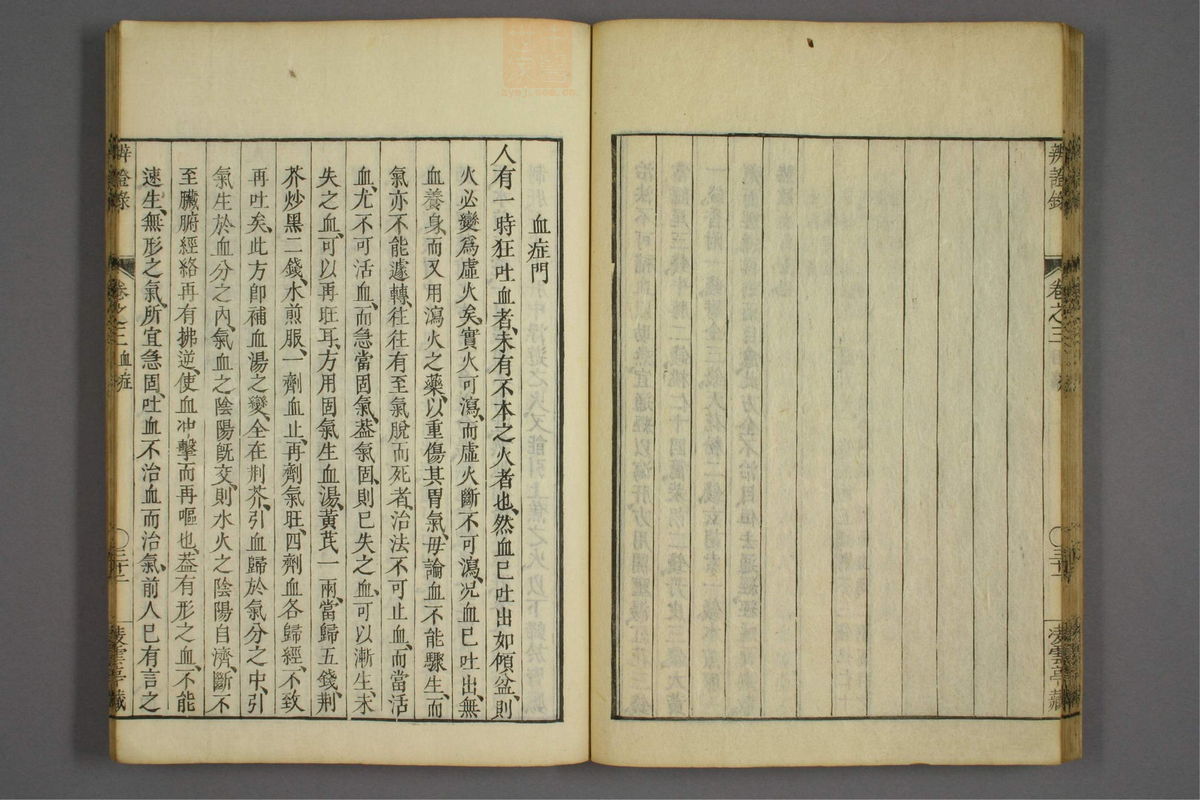 辨證錄
卷之三
三十一
菱雲亭藏
血症門
人有一時狂吐血者、未有不本之火者也、然血已吐出如傾盆、則
火必變爲虛火矣、實火可瀉、而虛火斷不可瀉、况血已吐出、無
血養身、而又用瀉火之藥、以重傷其胃氣、毋論血不能驟生、而
氣亦不能遽轉、往往有至氣脫而死者、治法不可止血、而當活
血、尤不可活血、而急當固氣、葢氣固、則已失之血、可以漸生、未
失之血、可以再旺耳、方用固氣生血湯、黃芪一兩、當歸五錢、荆
芥炒黑二錢、水煎服、一劑血止、再劑氣旺、四劑血各歸經、不致
再吐矣、此方卽補血湯之變、全在荆芥、引血歸於氣分之中、引
氣生於血分之內、氣血之陰陽旣交、則水火之陰陽自濟、斷不
至臟腑經絡再有拂逆、使血冲擊而再嘔也、葢有形之血、不能
速生、無形之氣、所宜急固、吐血不治血而治氣、前人已有言之
辨證錄
卷之三 血症
三十二
菱雲亭藏